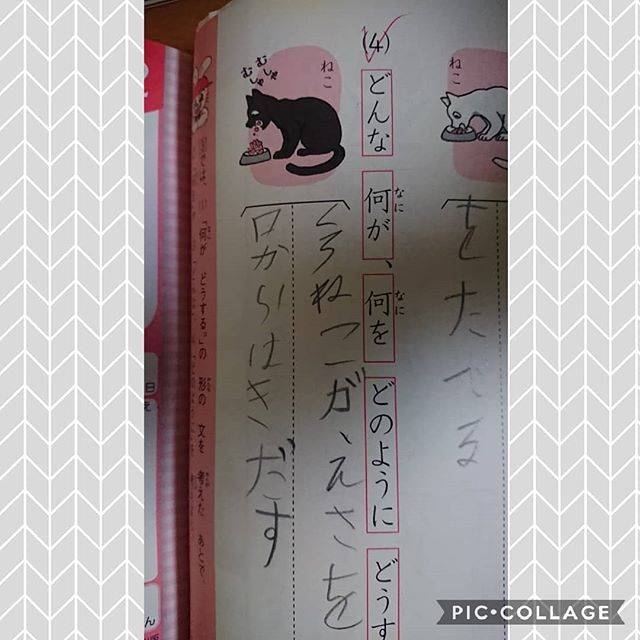 ねこ
をたてる
(4)
どんな 何が、何を どのように どうす
なに
なに
ねこ
むしゃ
むしゃ
くろねこが、えさを
口からはきだす
何が どうする。」の 形の 文を 考えた あとで、
PIC•COLLAGE